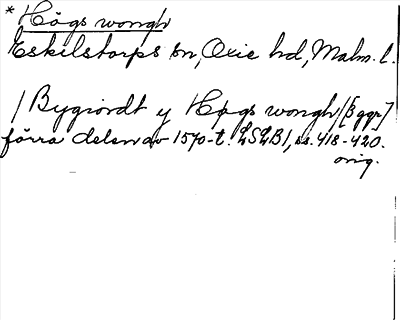 * Högs wongh
Eskilstorps sn, Oxie hd, Malm. l.
/ Bygiordt y Høgs wongh/[3 ggr]
förra delen av 1570-t. LSLB1, ss. 418-420.
orig.